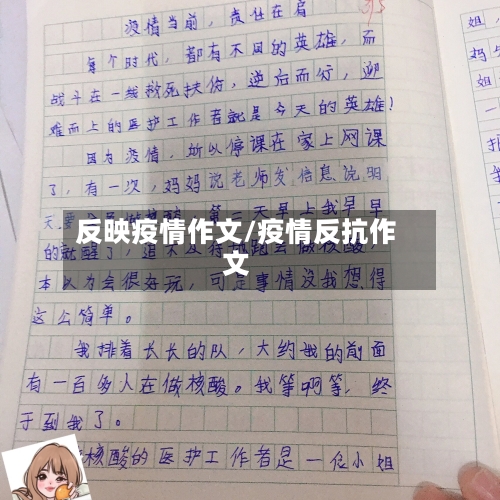 疫情当前，责任在肩
35
每个时代，都有不同的英雄，而
战斗在一线救死扶伤，逆后而行，迎
难而上的医护工作者就是今天的英雄！
因为疫情，所以停课在家上网课
了，有一次，妈妈说老师发信息说明
天要
第二天早上我早早
反映疫情作文/疫情反抗作
文
的就醒了，迫不及待
跑去做核酸，
本以为会很好玩，可是事情没我想得
这么简单。
我排着长长的队，大约我的前面
有一百多人在做核酸。我等啊等，终
于到我了。
核酸的医护工作者是一位小姐
姐，
妈